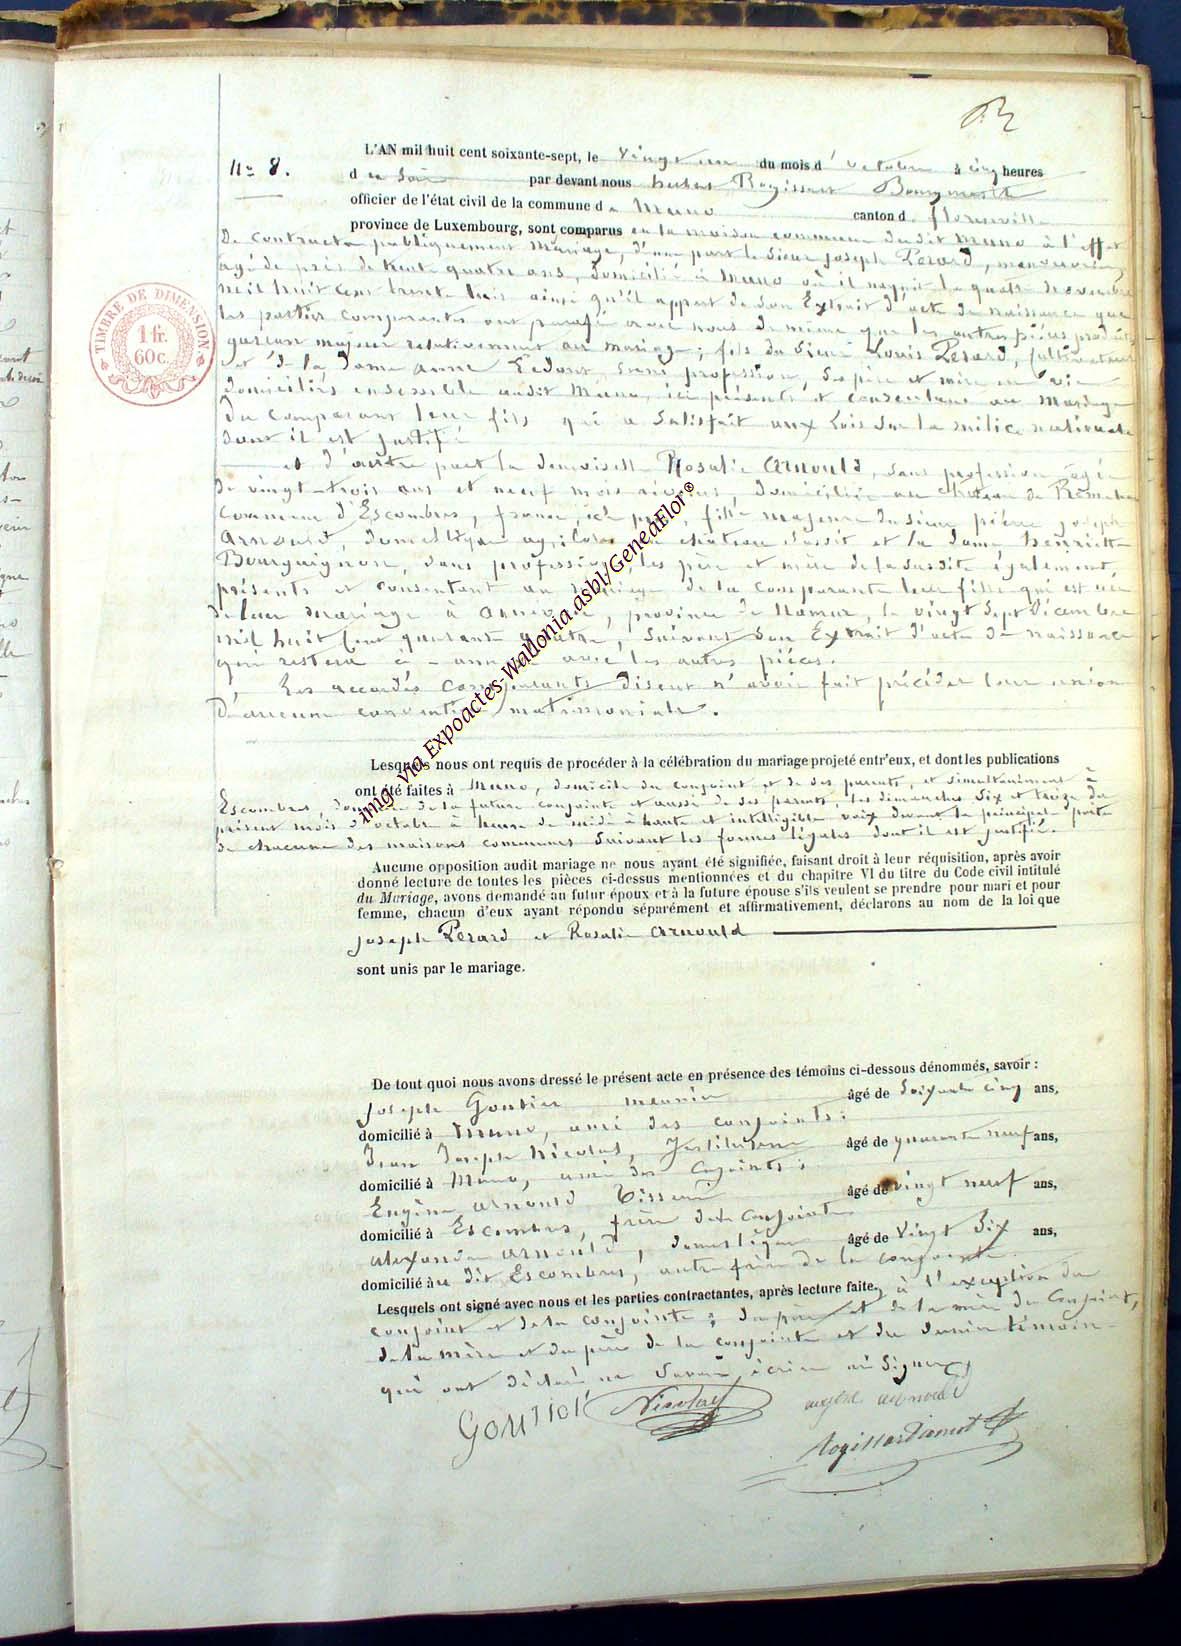 N° 8.
L'AN mil huit cent soixante-sept, le vingt un du mois d'octobre à cinq heures
d u soir par devant nous hubert Rogissart Bourgmestre
officier de l'état civil de la commune d e Muno canton d e florenville
province de Luxembourg, sont comparus en la maison commune dudit Muno à l'effet
De contracter publiquement mariage, d'une part le sieur joseph Perard, manouvrier,
âgé de près de trente quatre ans, domicilié à Muno où il naquit le quatre novembre
mil huit cent trente trois ainsi qu'il appert de son Extrait d'acte de naissance que
les parties comparantes ont parafé avec nous de même que les autres pièces produites
garcon majeur relativement au mariage; fils du sieur Louis Perard, Cultivateur
et de la dame anne Ledant, sans profession, ses père et mère en vie
domiciliés ensemble audit Muno, ici présents et consentans au Mariage
Du Comparant leur fils qui a Satisfait aux Lois Sur la milice nationale
dont il est justifié
et d'autre part la demoiselle Rosalie Arnould, sans profession âgée
de vingt-trois ans et neuf mois, domiciliée au château de
Commune d'Escombres, france, fille majeure du sieur pierre joseph
Arnould, domestique château susdit et la dame henriette
Bourguignon, sans profession, les père et mère de la susdite également
présents et consentant au mariage de la comparante leur fille qui est née
de leur mariage à province de Namur, le vingt sept Décembre
mil huit Cent quarante quatre, suivant son Extrait d'acte de naissance
qui restera ci-annexé avec les autres pièces.
Les accordés comparants disent n'avoir fait précéder leur union
D'aucune convention matrimoniale.
Lesquels nous ont requis de procéder à la célébration du mariage projeté entr'eux, et dont les publications
ont été faites à Muno, domicile du conjoint et de ses parents, et simultanément à
Escombres, domicile de la future conjointe et aussi de ses parents, les dimanches six et treize du
présent mois d'octobre à heure de midi à haute et intelligible voix devant la principale porte
de chacune des maisons communes suivant les formes légales dont il est justifié.
Aucune opposition audit mariage ne nous ayant été signifiée, faisant droit à leur réquisition, après avoir
donné lecture de toutes les pièces ci-dessus mentionnées et du chapitre VI du titre du Code civil intitulé
du Mariage, avons demandé au futur époux et à la future épouse s'ils veulent se prendre pour mari et pour
femme, chacun d'eux ayant répondu séparément et affirmativement, déclarons au nom de la loi que
joseph Perard et Rosalie Arnould
sont unis par le mariage.
De tout quoi nous avons dressé le présent acte en présence des témoins ci-dessous dénommés, savoir :
joseph meunier âgé de Soixante cinq ans,
domicilié à Muno, ami des conjoints;
Jean Joseph Nicolas, Instituteur âgé de quarante neuf ans,
domicilié à Muno, ami des Conjoints;
Eugène Arnould Tisseur âgé de vingt neuf ans,
domicilié à Escombres, frère de la Conjointe
alexandre Arnould, domestique âgé de vingt six ans,
domicilié au dit Escombres, autre frère de la conjointe.
Lesquels ont signé avec nous et les parties contractantes, après lecture faite, à l'exception du
conjoint et de la conjointe; du père et de la mère du Conjoint,
de la mère et du père de la conjointe et du dernier témoin
qui ont déclaré ne Savoir écrire ni Signer,
Nicolas
TIMBRE DE DIMENSION
1 fr.
60 c.
img via Expoactes-Wallonia.asbl/GeneaFlor®